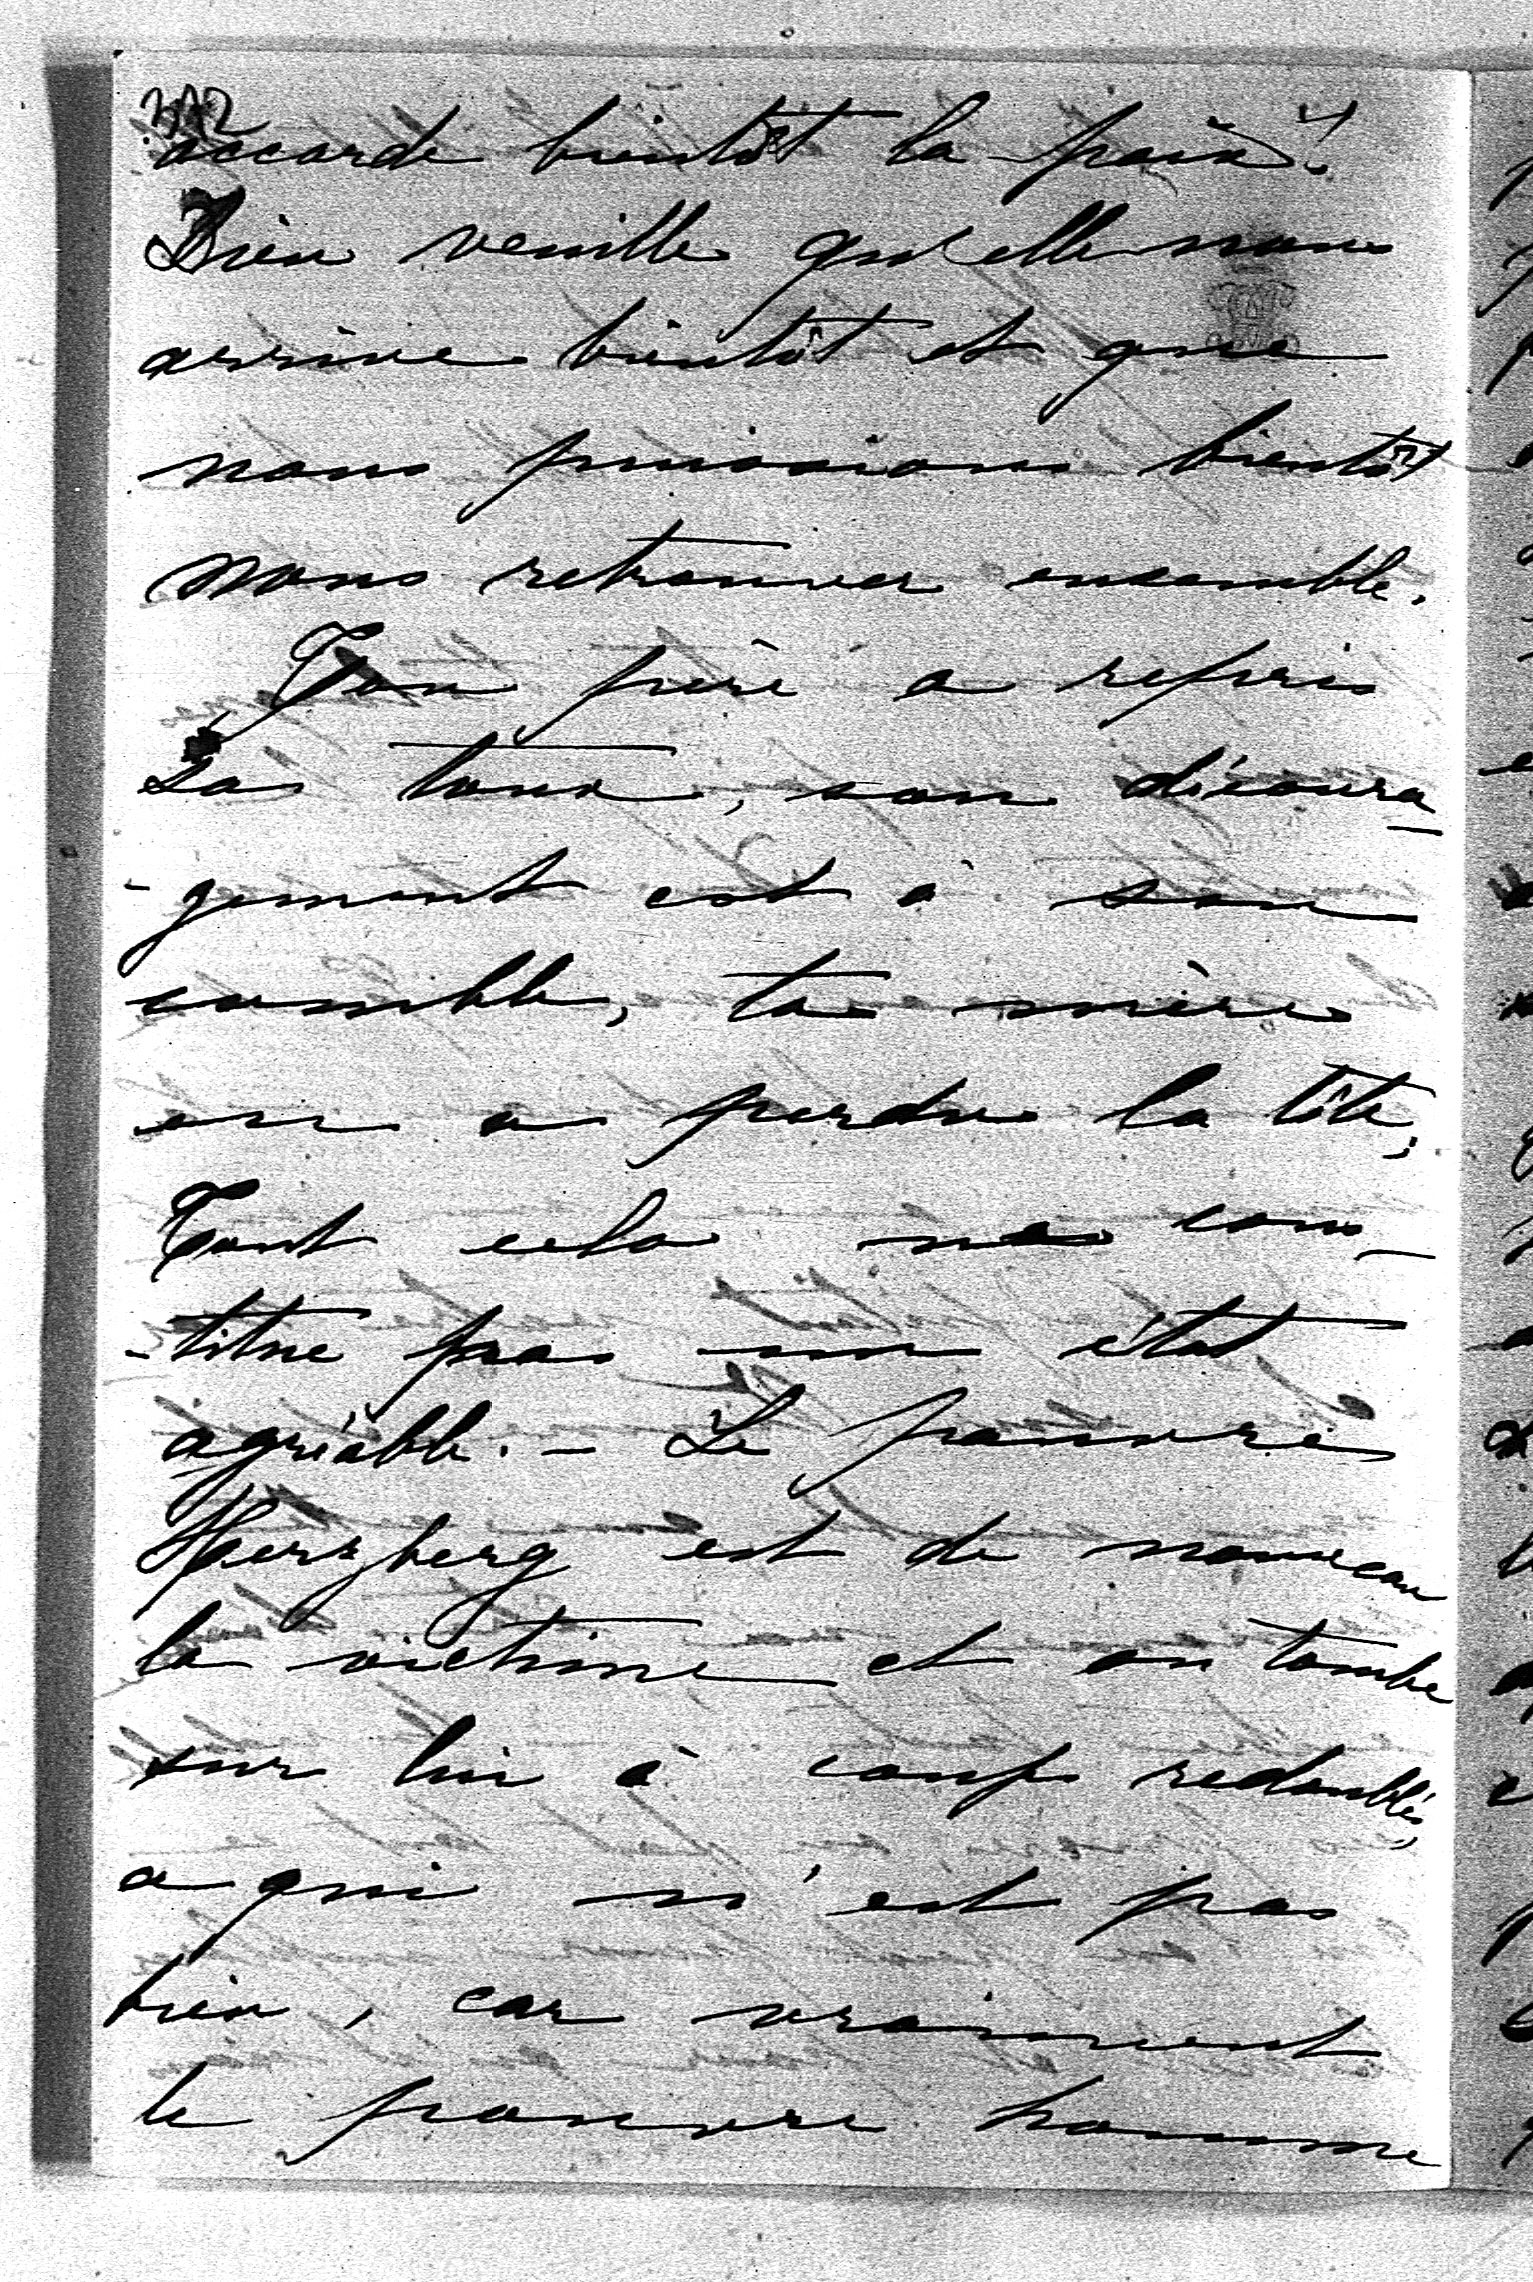 312
accorde bientôt la paix".
Dieu veuille qu'elle nous
arrive bientôt et que
nous puissions bientôt
nous retrouver ensemble.
Ton père a repris
sa toux, son découra-
-gement est à son
comble, ta mère
en a perdu la tête,
Tout cela ne cons-
-titue pas un état
agréable. - Le pauvre
Herzberg est de nouveau
la victime et on tombe
sur lui à coups redoublés,
a qui n'est pas
bien, car vraiment
le pauvre homme